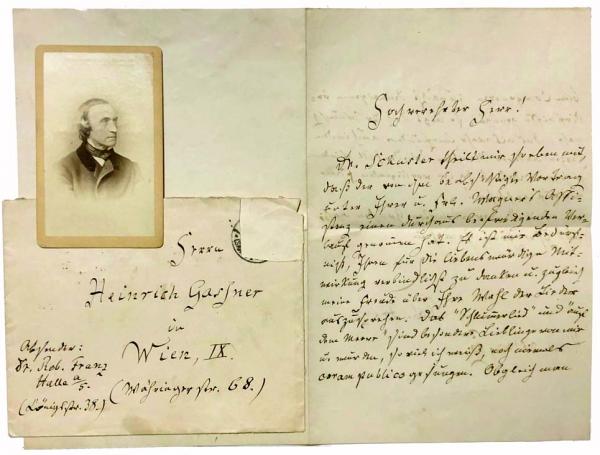 Herrn
Heinrich Gassner
in
Wien, IX.
(Währingerstr. 68.)
Absender:
Dr. Rob. Franz
Halle a/S.
(Königsstr. 38.)
Hochverehrter Herr!
Dr. Schuster theilt mir soeben mit,
daß der von ihm beabsichtigte Vortrag
unter Ihrer u. Frl. Wagner's Assi-
stenz einen durchaus befriedigenden Ver-
lauf genommen hat. Es ist mir Bedürf-
niß, Ihnen für die liebenswürdige Mit-
wirkung verbindlichst zu danken u. zugleich
meine Freude über Ihre Wahl der Lieder
auszusprechen. Das "Schlummerlied" und "Auf
dem Meere" sind besondere Lieblinge von mir
u. wurden, so viel ich weiß, noch niemals
coram publico gesungen. Obgleich man